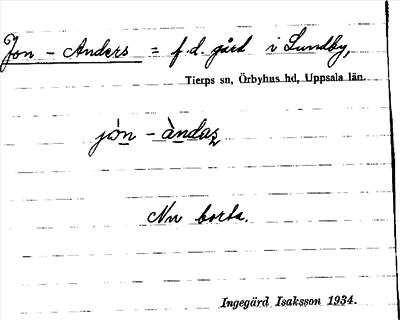 Jon - Anders = f. d. gård i Lundby,
Tierps sn, Örbyhus hd, Uppsala län.
jòn - àndaʂ
Nu borta.
Ingegärd Isaksson 1934.